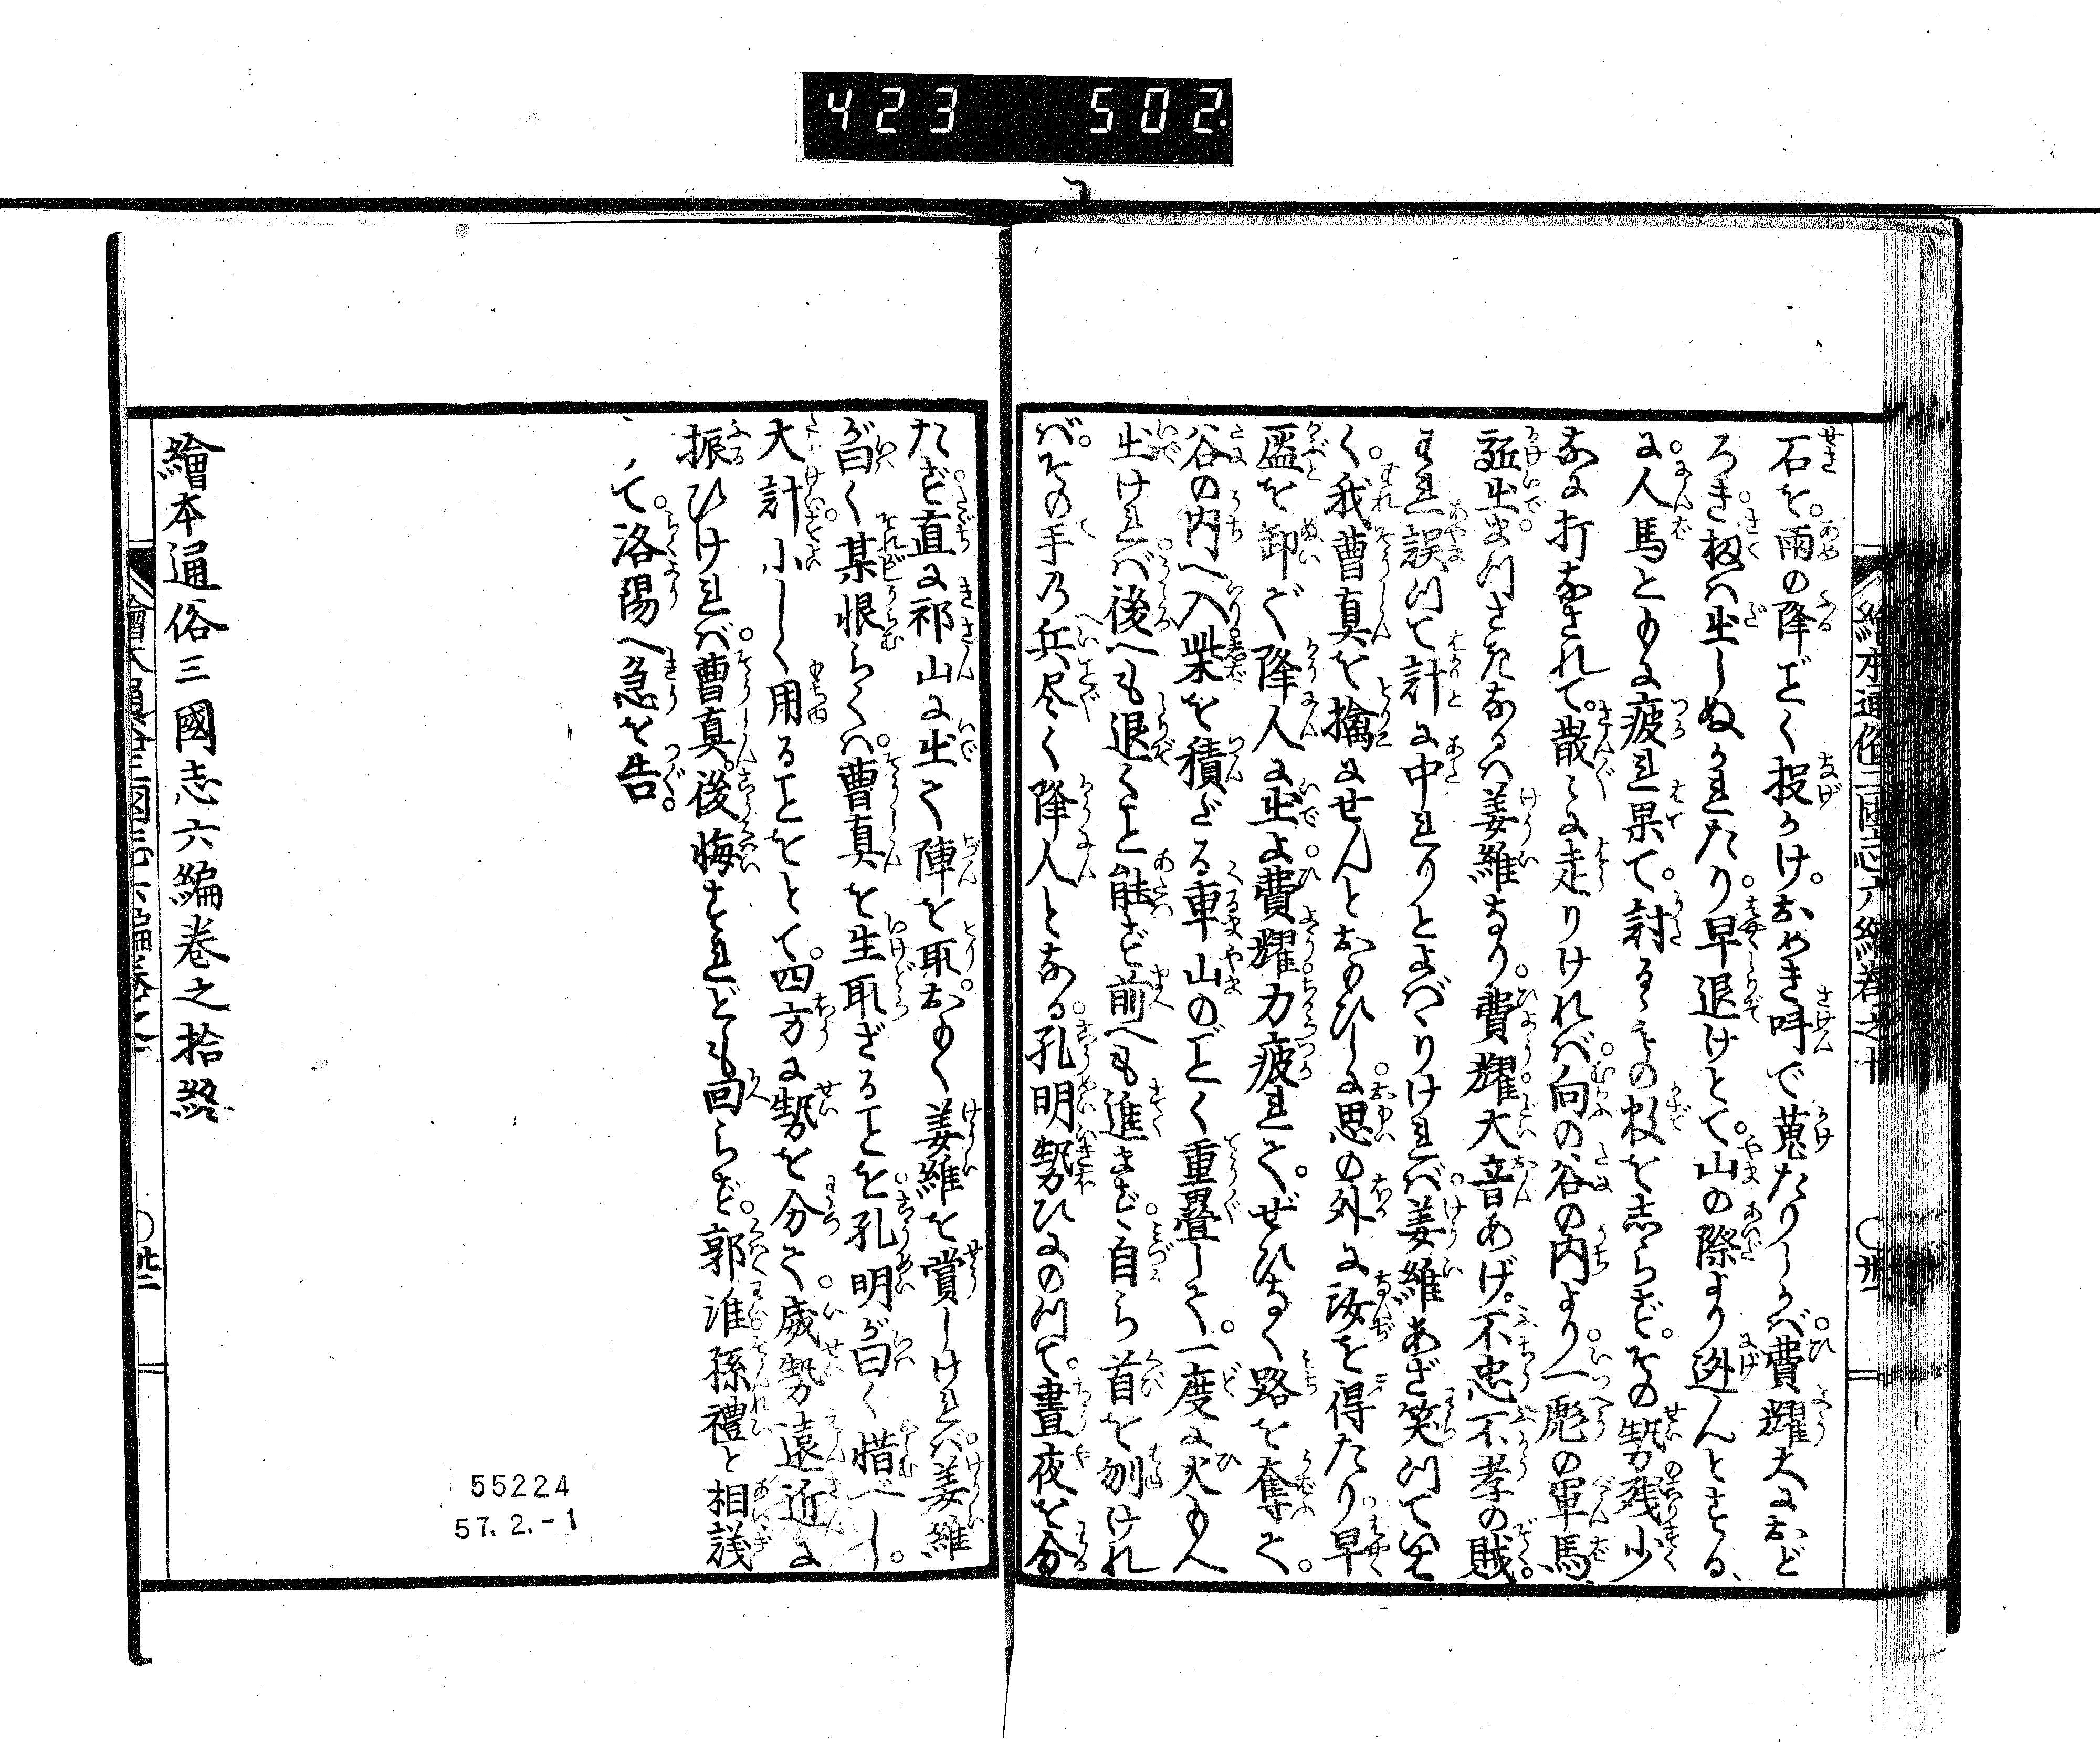 423 502.
繪本通俗三國志六編巻之十 〇卅一
石を。雨の降ごとく投かけ。おめき叫で蒐たりしかば費耀大におど
ろき扨ハ出しぬかれたり。早退けとて。山の際より逃んとする
に人馬ともに疲れ果て。討るゝもの数を志らず。その勢残少
なに打なされて。散〻に走りけれバ。向の谷の内より一彪の軍馬
駈出まつさきなるハ姜維なり。費耀大音あげ。不忠不孝の賊。
われ誤つて計に中れりとよばゝりけれバ。姜維あざ笑つていはく
我曹真を擒にせんとおもひしに。思の外に汝を得たり。早
盔を卸ぎ降人に出よ。費耀力疲れて。ぜひなく路を奪て。
谷の内へ入。柴を積ざる車山のごとく重疊して。一度に火もえ
出けれバ。後へも退くこと能ず前へも進まず。自ら首を刎けれ
バ。その手乃兵尽く降人となる。孔明勢ひにのつて。晝夜を分
たず。直に祁山に出て陣を取。おもく姜維を賞しけれバ。姜維
が曰く某恨らくハ。曹真を生取ざることを。孔明が曰く惜べし。
大計小しく用ることをとて。四方に勢を分て。威勢遠近に
振ひけれバ。曹真。後悔すれども回らず。郭淮孫禮と相議
して。洛陽へ急を告。
繪本通俗三國志六編巻之拾終
〇卅二
55224
57.2.-1